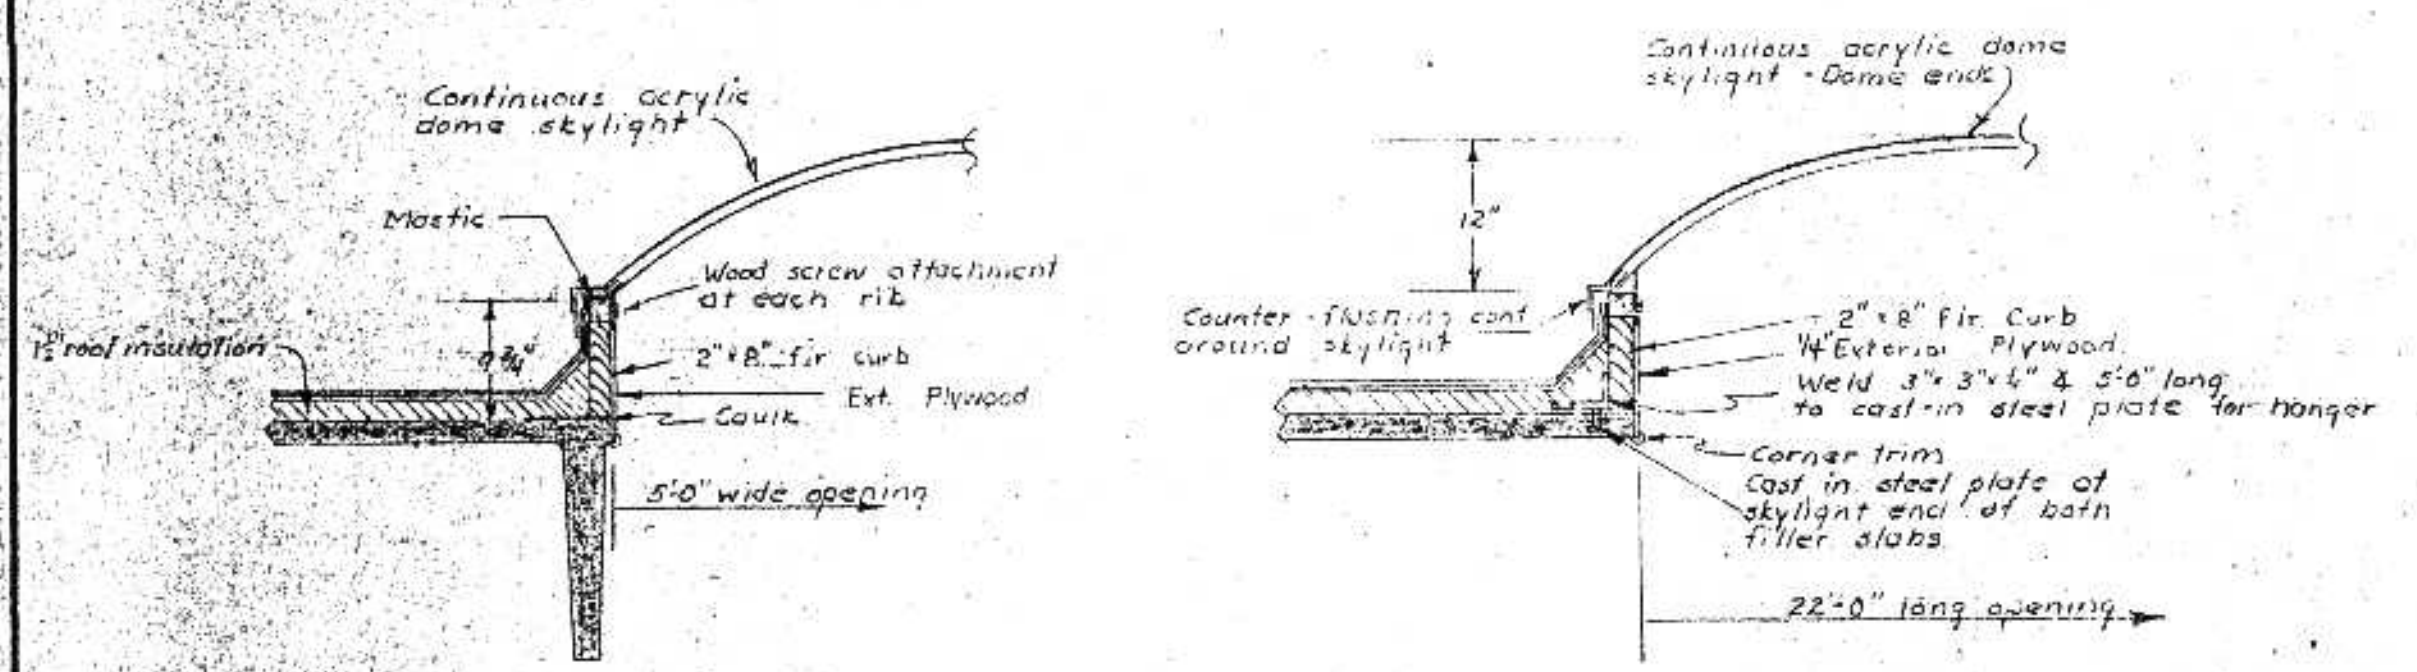 Continuous acrylic
dome skylight
Mastic
Wood screw attachment
at each rib
1½" roof insulation
9 ¾"
2" × 8" fir curb
Ext. Plywood
Caulk
5'-0" wide opening
Continuous acrylic dome
skylight - Dome ends
12"
Counter-flashing cont.
around skylight
2" × 8" fir Curb
¼" Exterior Plywood
Weld 3" × 3" × ¼" ∠ 5'-0" long
to cast-in steel plate for hanger
Corner trim
Cast in steel plate at
skylight end of both
filler slabs
22'-0" long opening